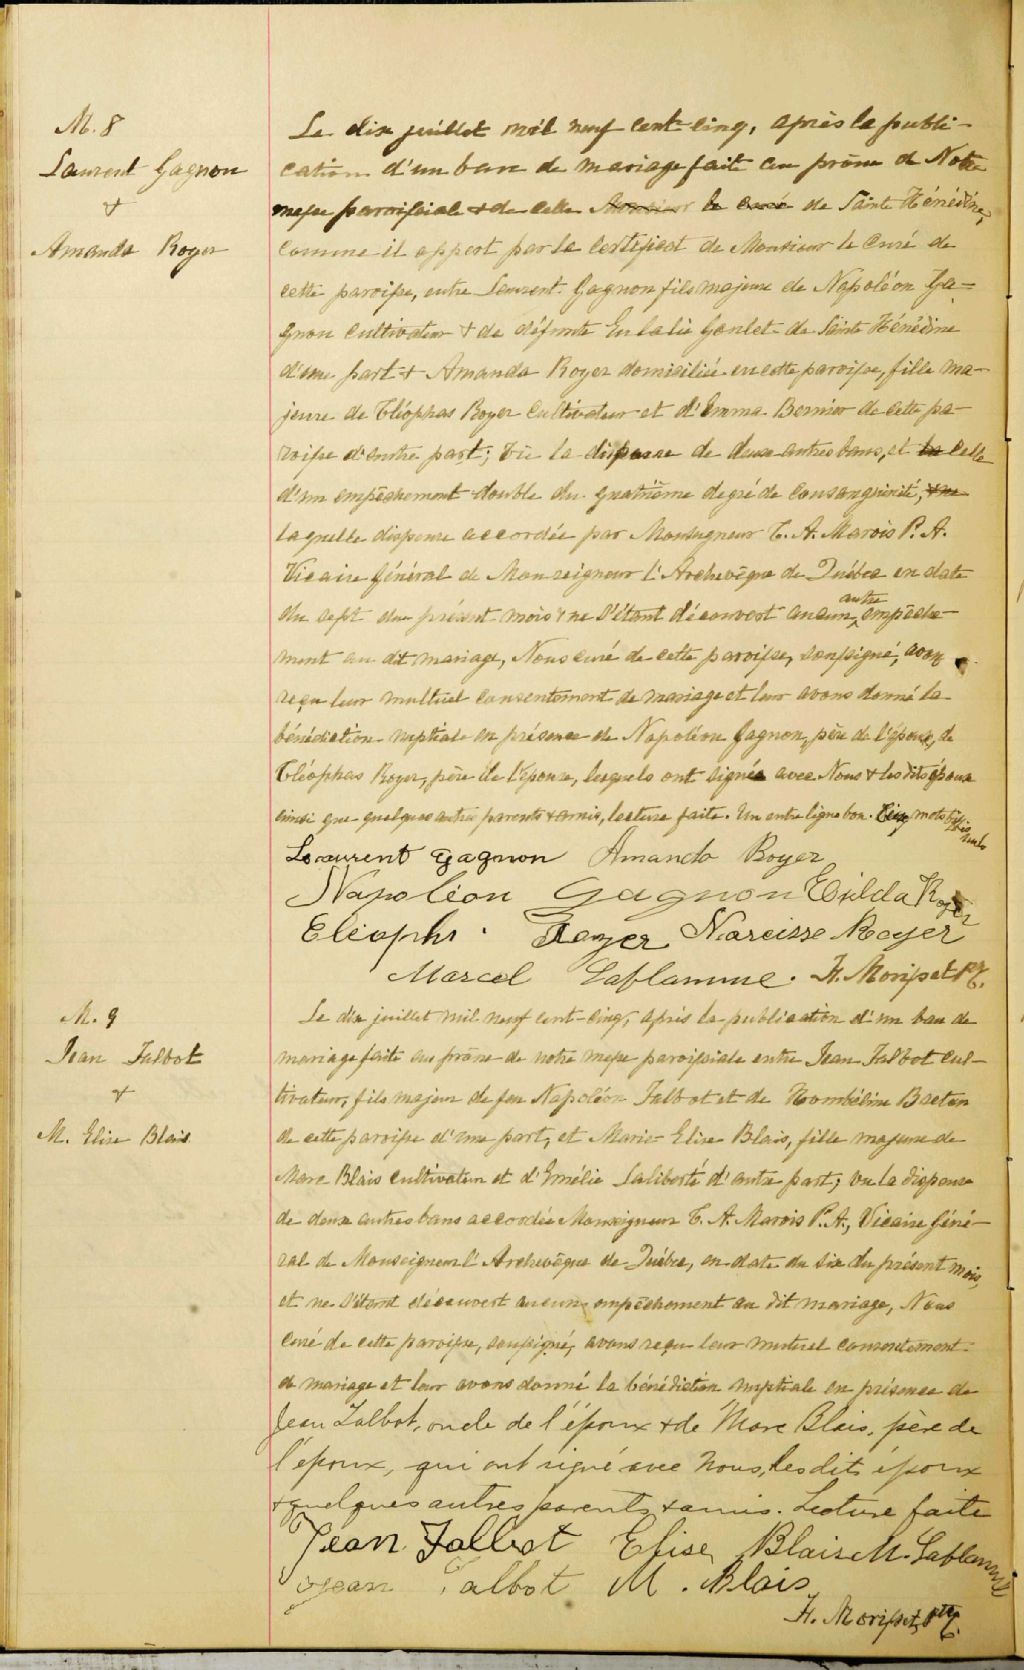 M. 8
Laurent Gagnon
&
Amanda Royer
Le dix juillet mil neuf cent cinq, après la publi-
cation d'un banc de mariage fait au prône de Notre
messe paroissiale & de celle Monsieur le curé de Sainte Hénédine,
comme il appert par le certificat de Monsieur le Curé de
cette paroisse, entre Laurent Gagnon fils majeur de Napoléon Ga-
gnon cultivateur & de défunte Eulalie Goulet de Sainte Hénédine
d'une part & Amanda Royer domiciliée en cette paroisse, fille ma-
jeure de Cléophas Royer cultivateur et d'Emma Bernier de cette pa-
roisse d'autre part; vu la dispense de deux autres bans, et la celle
d'un empêchement double du quatrième degré de consanguinité,
laquelle dispense accordée par Monseigneur C. A. Marois P. A.
Vicaire Général de Monseigneur l'Archevêque de Québec en date
du sept du présent mois & ne s'étant découvert aucun autre empêche-
ment au dit mariage, Nous curé de cette paroisse, soussigné, avons
reçu leur multuel consentement de mariage et leur avons donné la
bénédiction nuptiale en présence de Napoléon Gagnon, père de l'époux, de
Cléophas Royer, père de l'épouse, lesquels ont signés avec Nous & les dits époux
ainsi que quelques autres parents & amis, lecture faite. Un entre ligne bon. Cinq mots biffés nuls
Laurent Gagnon Amanda Royer
Napoléon Gagnon Exilda Royer
Cléophs. Royer Narcisse Royer
Marcel Laflamme. H. Morisset Ptre.
M. 9
Jean Talbot
&
M. Elise Blais
Le dix juillet mil neuf cent-cinq, après la publication d'un ban de
mariage faite au prône de notre messe paroissiale entre Jean Talbot cul-
tivateur, fils majeur de feu Napoléon Talbot et de Hombéline
de cette paroisse d'une part, et Marie-Elise Blais, fille majeure de
Marc Blais cultivateur et d'Emélie Laliberté d'autre part; vu la dispense
de deux autres bans accordée Monseigneur C. A. Marois P. A., Vicaire Géné-
ral de Monseigneur l'Archevêque de Québec, en date du six du présent mois,
et ne s'étant découvert aucun empêchement au dit mariage, Nous
curé de cette paroisse, soussigné, avons reçu leur mutuel consentement
de mariage et leur avons donné la bénédiction nuptiale en présence de
Jean Talbot, oncle de l'époux & de Marc Blais, père de
l'époux, qui ont signé avec Nous, les dits époux
& quelques autres parents & amis. Lecture faite
Jean Talbot Elise Blais M. Laflamme
Jean Talbot M. Blais
H. Morisset, Ptre.